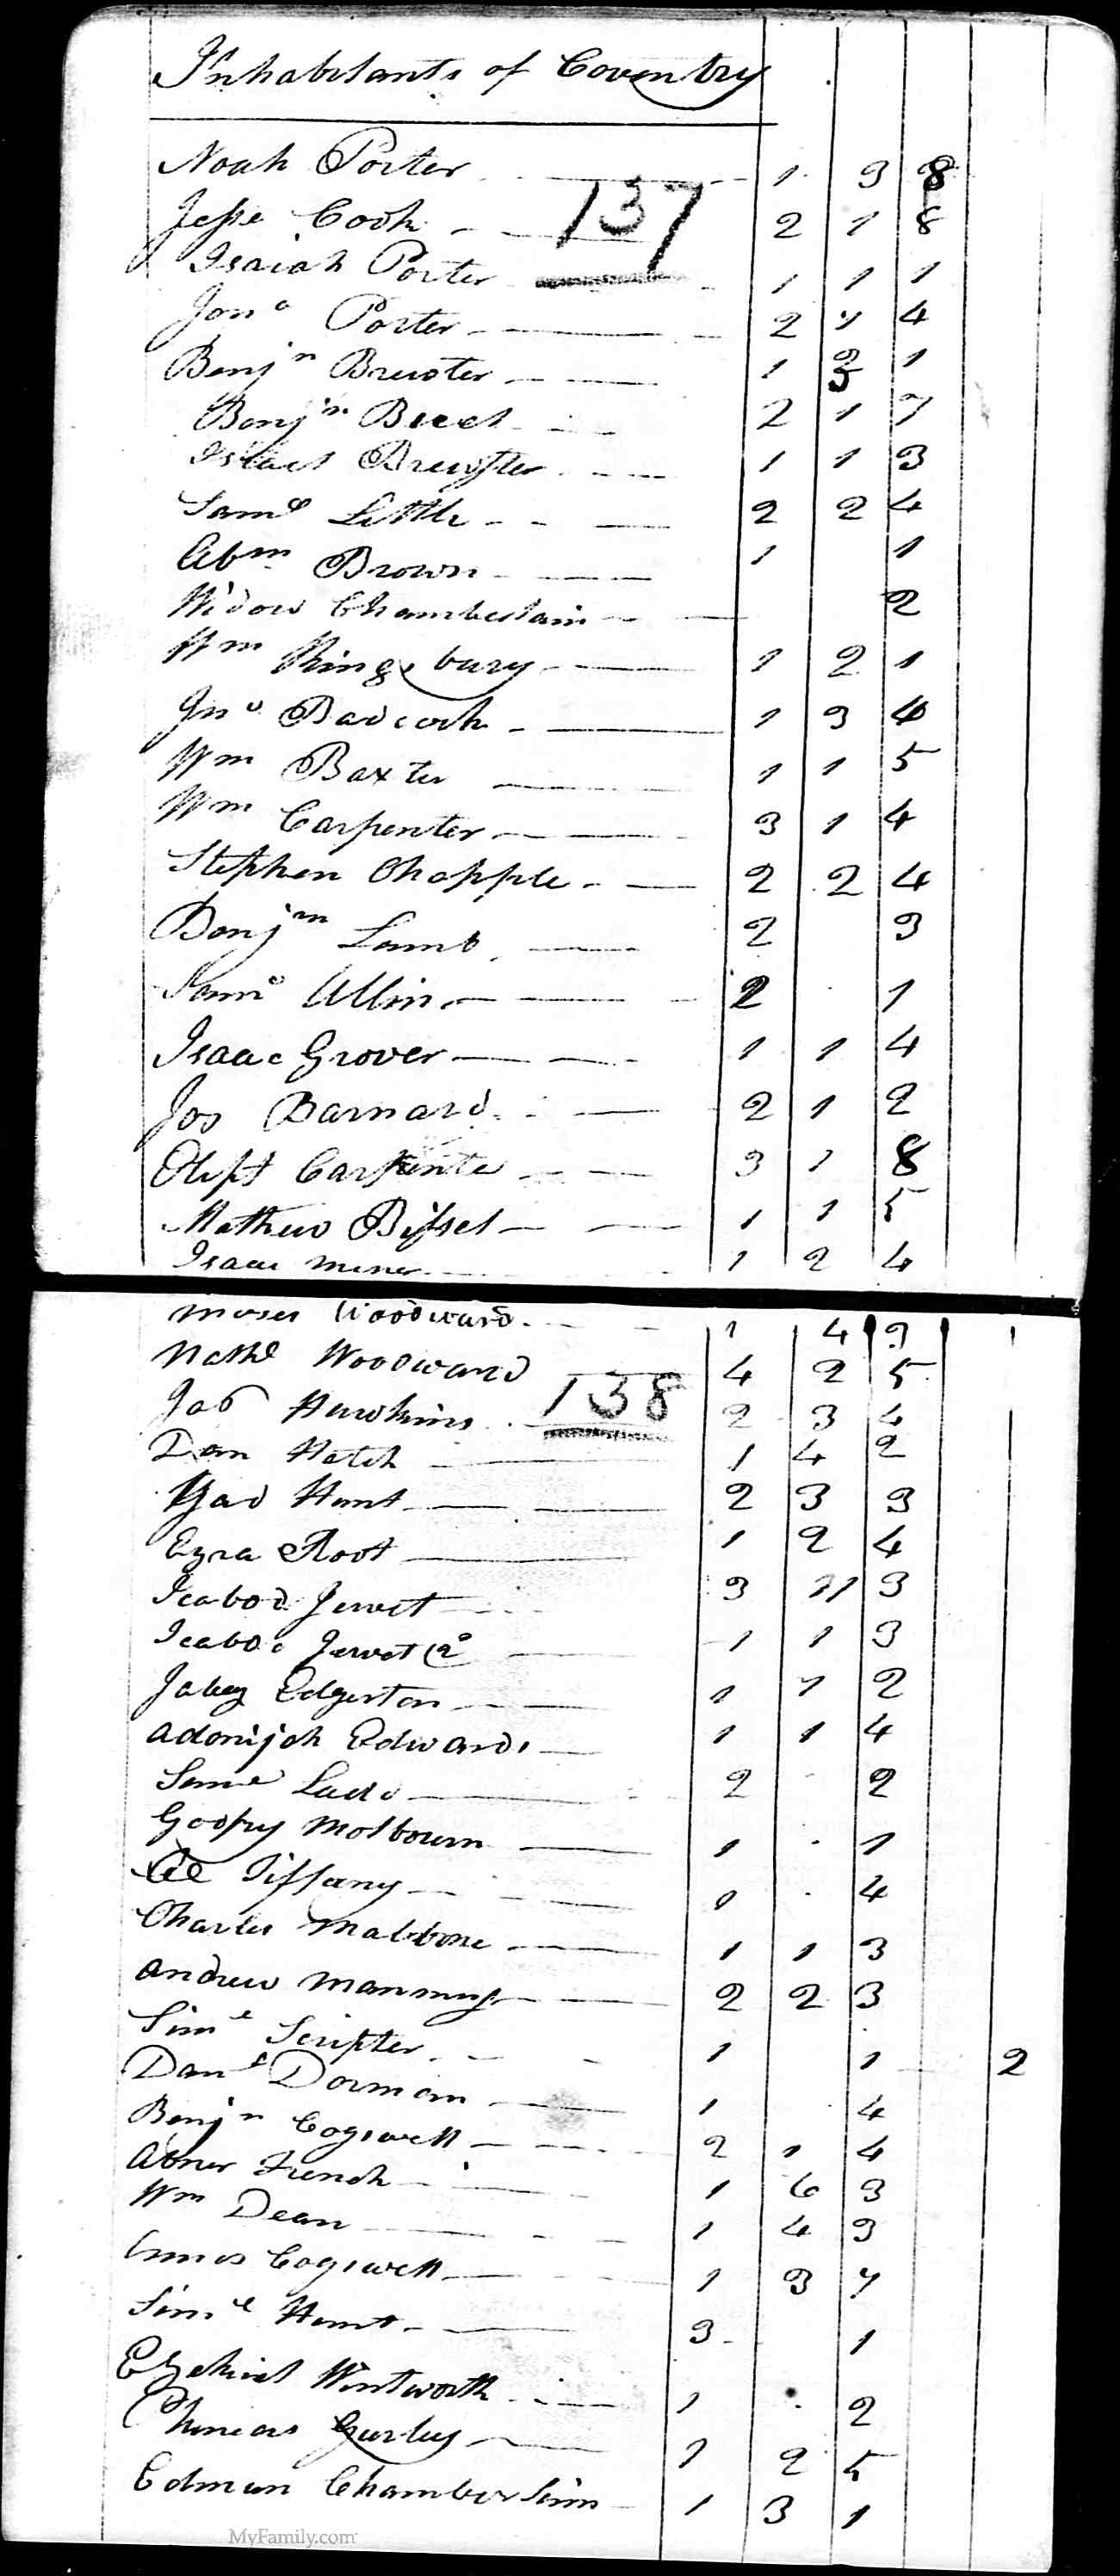 Inhabitants of Coventry
Noah Porter 1 3 8
137
Jesse Cook 2 1 8
Isaiah Porter 1 1 1
Jonª Porter 2 4
Benjⁿ Brewster 1 1
Benjⁿ 2 1 7
Israel Brewster 1 1 3
Samˡ Little 2 2 4
Abᵐ Brown 1 1
Widow Chamberlain 2
Wᵐ Kingsbury 1 2 1
Jnº Badcock 1 3 4
Wᵐ Baxter 1 1 5
Wᵐ Carpenter 3 1 4
Stephen Chapple 2 2 4
Benjᵐ Lamb 2 3
Samˡ Allin 2 1
Isaac Grover 1 1 4
Jos Barnard 2 1 2
Olipt Carpente 3 1 8
Mathew Bissel 1 1 5
Isaac Miner 1 2 4
Moses Woodward 1 4 3
Nathˡ Woodward 4 2 5
138
Job Hawkins 2 3 4
Dan Hatch 1 4 2
Gad Hunt 2 3 3
Ezra Root 1 2 4
Icabod Jewet 3 11 3
Icabod Jewet 2º 1 1 3
Jabez Edgerton 1 1 2
Adonijah Edwards 1 1 4
Samˡ Ladd 2 2
Godfry Molbourn 1 1
Tiffany 1 4
Charles Malbone 1 1 3
Andrew Manning 2 2 3
Simˡ Scripter 1 1 2
Danˡ Dorman 1 4
Benjⁿ Cogswell 2 1 4
Abner French 1 6 3
Wᵐ Dean 1 4 3
Cogswell 1 3 7
Simˡ Hunt 3 1
Ezekiel Wintworth 1 2
Phineas Gurley 1 2 5
Edman Chamberlinn 1 3 1
MyFamily.com